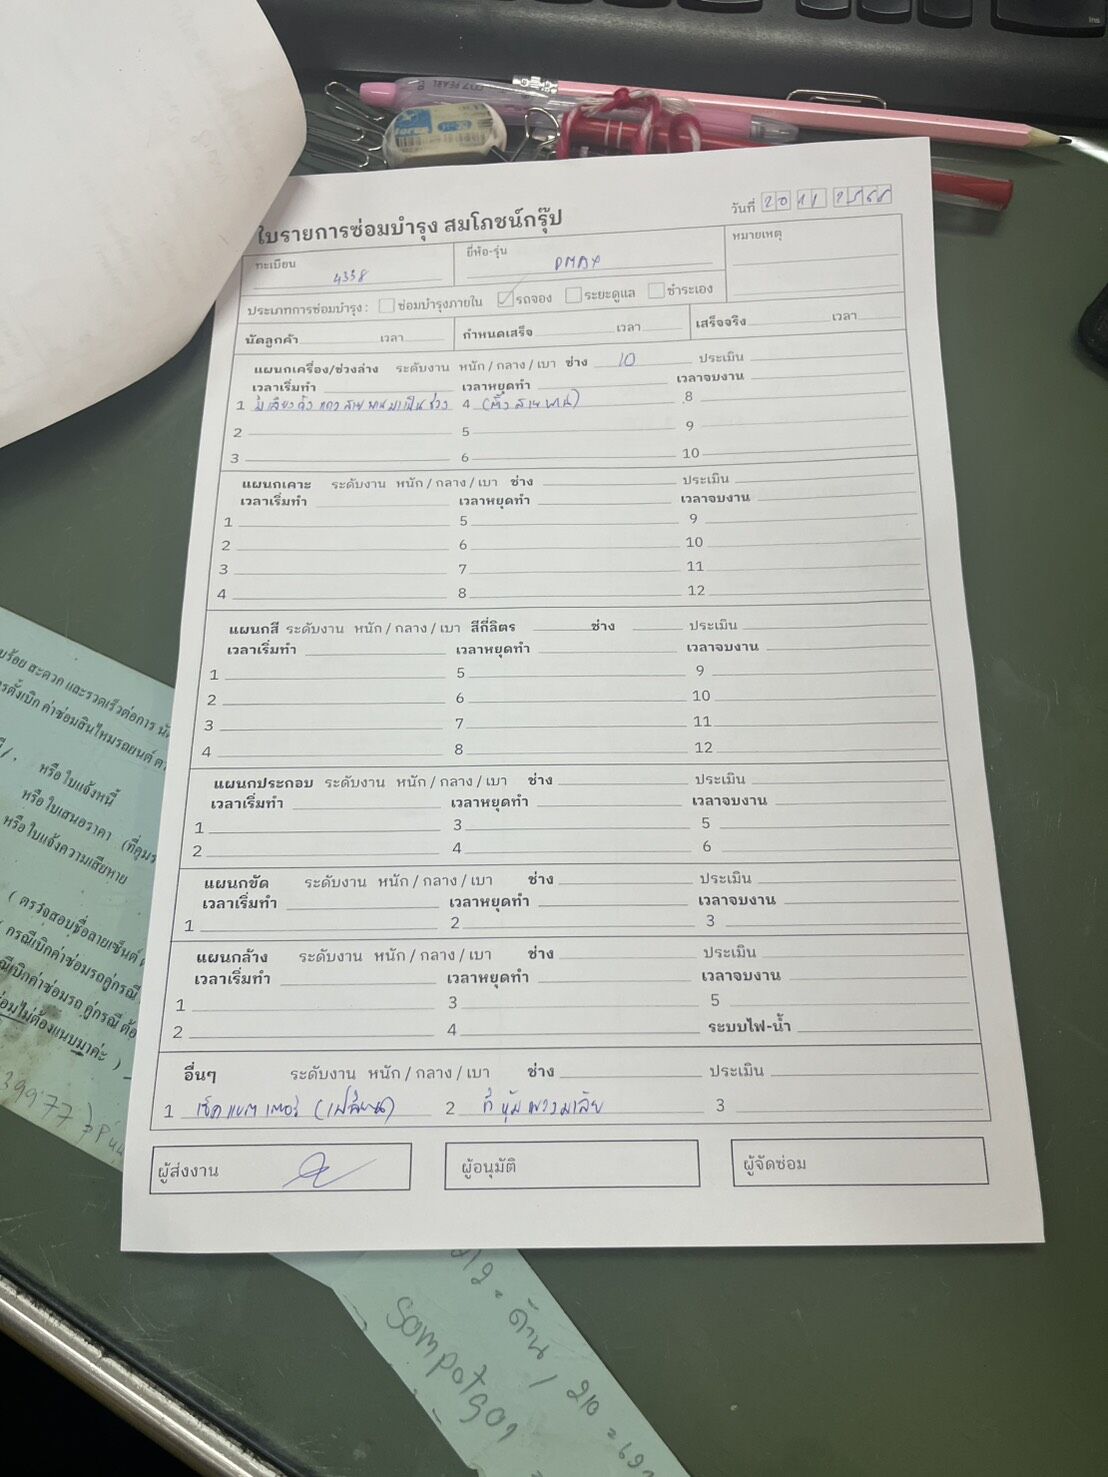 ใบรายการซ่อมบำรุง สมโภชน์กรุ๊ป
วันที่ 20 11 2568
ทะเบียน 4338 ยี่ห้อ-รุ่น DMAX หมายเหตุ
ประเภทการซ่อมบำรุง : ซ่อมบำรุงภายใน รถจอง ระยะดูแล ชำระเอง
นัดลูกค้า เวลา กำหนดเสร็จ เวลา เสร็จจริง เวลา
แผนกเครื่อง/ช่วงล่าง ระดับงาน หนัก / กลาง / เบา ช่าง 10 ประเมิน
เวลาเริ่มทำ เวลาหยุดทำ เวลาจบงาน
1 มีเสียงดัง แถว สายพานมาเป็นช่วง 4 (ตั้งสายพาน) 8
2 5 9
3 6 10
แผนกเคาะ ระดับงาน หนัก / กลาง / เบา ช่าง ประเมิน
เวลาเริ่มทำ เวลาหยุดทำ เวลาจบงาน
1 5 9
2 6 10
3 7 11
4 8 12
แผนกสี ระดับงาน หนัก / กลาง / เบา สีกี่ลิตร ช่าง ประเมิน
เวลาเริ่มทำ เวลาหยุดทำ เวลาจบงาน
1 5 9
2 6 10
3 7 11
4 8 12
แผนกประกอบ ระดับงาน หนัก / กลาง / เบา ช่าง ประเมิน
เวลาเริ่มทำ เวลาหยุดทำ เวลาจบงาน
1 3 5
2 4 6
แผนกขัด ระดับงาน หนัก / กลาง / เบา ช่าง ประเมิน
เวลาเริ่มทำ เวลาหยุดทำ เวลาจบงาน
1 2 3
แผนกล้าง ระดับงาน หนัก / กลาง / เบา ช่าง ประเมิน
เวลาเริ่มทำ เวลาหยุดทำ เวลาจบงาน
1 3 5
2 4 ระบบไฟ-น้ำ
อื่นๆ ระดับงาน หนัก / กลาง / เบา ช่าง ประเมิน
1 เช็คแบตเตอรี่ (เปลี่ยน) 2 ที่หุ้มพวงมาลัย 3
ผู้ส่งงาน ผู้อนุมัติ ผู้จัดซ่อม
บร้อย สะดวก และรวดเร็วต่อการ
ารตั้งเบิก ค่าซ่อมสินไหมรถยนต์
หรือ ใบแจ้งหนี้
หรือ ใบเสนอราคา
หรือ ใบแจ้งความเสียหาย
( ตรวจสอบชื่อลายเซ็นต์
กรณีเบิกค่าซ่อมรถคู่กรณี
ณีเบิกค่าซ่อมรถ คู่กรณี ต้อ
อมไม่ต้องแนบมาค่ะ )
39977
212 = ด้าน / 210 =
Sompotgor
Ins